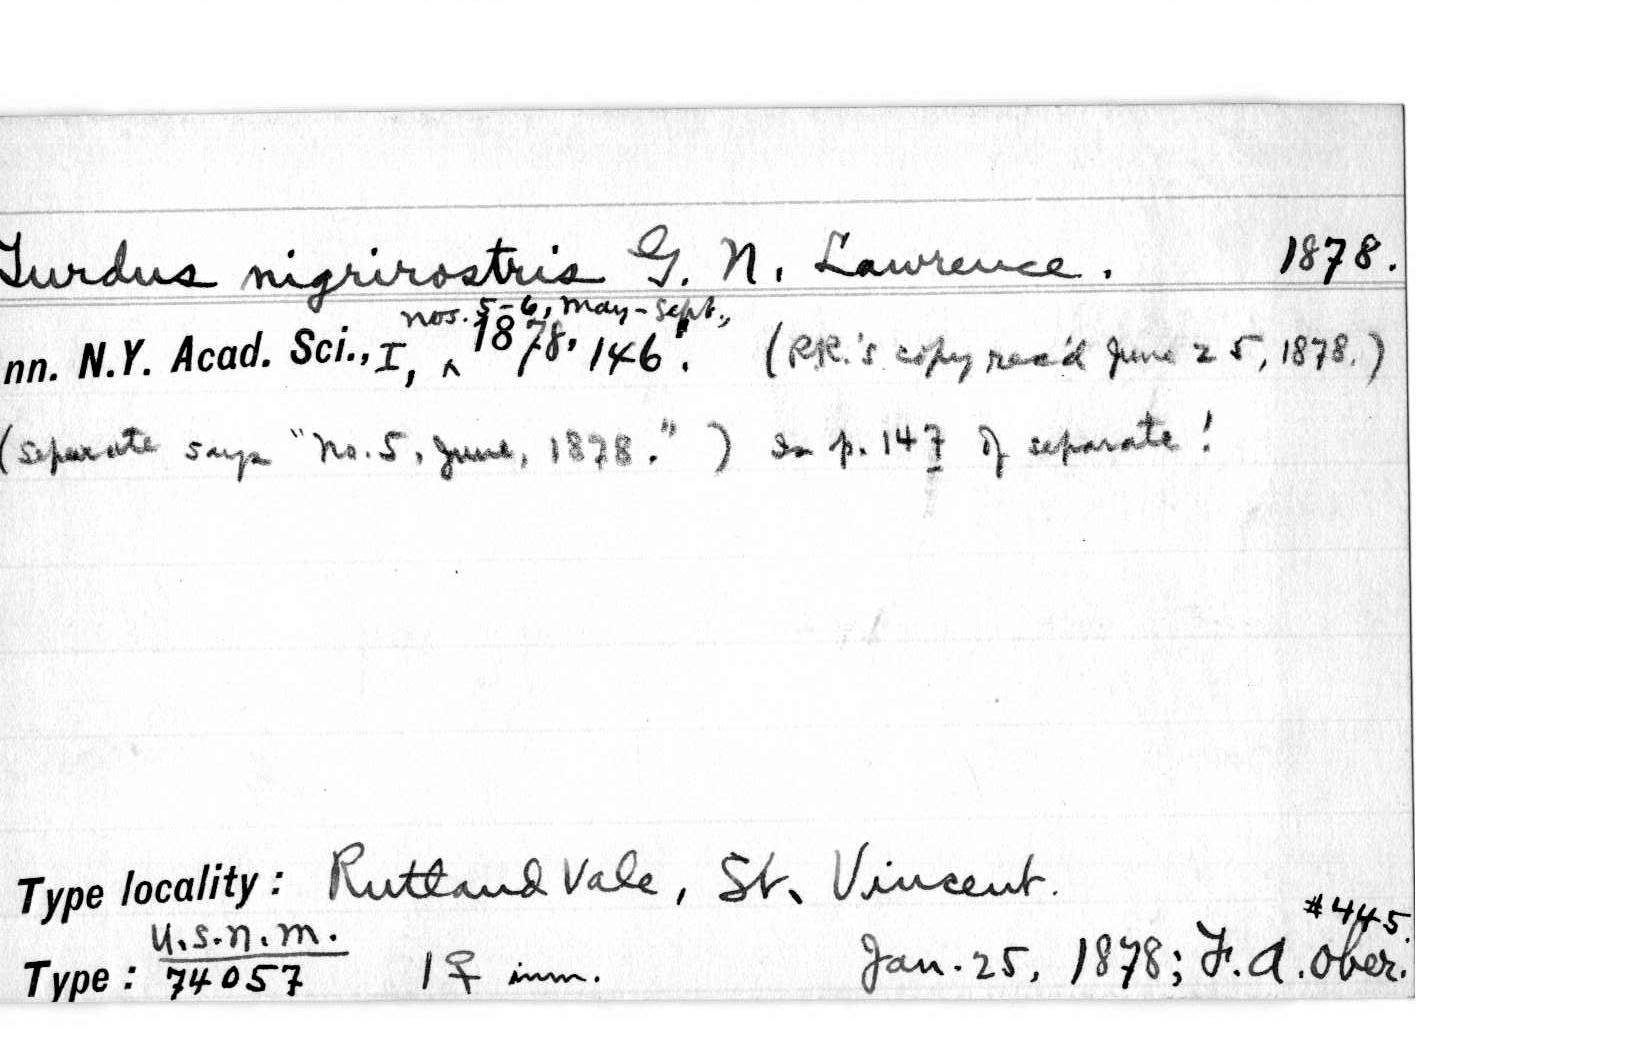 Turdus nigrirostris G. N. Lawrence. 1878.
nos. 5-6, May-Sept.,
nn. N.Y. Acad. Sci., I, ^ 1878, 146. (R.R.'s copy rec'd June 25, 1878.)
(Separate says "No. 5, June, 1878.") Is p. 147 of separate!
Type locality: Rutland Vale, St. Vincent.
#445.
U.S.N.M.
Type: 74057 1 ♀ imm. Jan. 25, 1878; F. A. Ober.